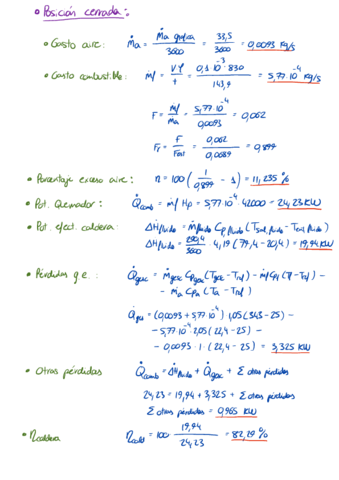 • Posición cerrada:
• Gasto aire: ṁa = ṁa gráfica / 3600 = 33,5 / 3600 = 0,0093 kg/s
• Gasto combustible: ṁf = Vρ / t = 0,1·10⁻³·830 / 143,9 = 5,77·10⁻⁴ kg/s
F = ṁf / ṁa = 5,77·10⁻⁴ / 0,0093 = 0,062
Fr = F / Fest = 0,062 / 0,0689 = 0,899
• Porcentaje exceso aire: n = 100 (1 / 0,899 - 1) = 11,235 %
• Pot. Quemador: Q̇comb = ṁf Hp = 5,77·10⁻⁴·42000 = 24,23 KW
• Pot. efect. caldera: ΔḢfluido = ṁfluido Cp,fluido (Tsal,fluido - Tent,fluido)
ΔḢfluido = 290,4 / 3600 · 4,19 (79,4 - 20,4) = 19,94 KW
• Pérdidas g.e.: Q̇gec = ṁgec Cpgec (Tgec - Tref) - ṁf Cf (Tf - Tref) -
- ṁa Cpa (Ta - Tref)
Q̇ges = (0,0093 + 5,77·10⁻⁴) 1,05 (343 - 25) -
- 5,77·10⁻⁴·2,05 (22,4 - 25) -
- 0,0093 · 1 · (22,4 - 25) = 3,325 KW
• Otras pérdidas Q̇comb = ΔḢfluido + Q̇gec + Σ otras pérdidas
24,23 = 19,94 + 3,325 + Σ otras pérdidas
Σ otras pérdidas = 0,965 KW
• ηcaldera ηcald = 100 19,94 / 24,23 = 82,29 %